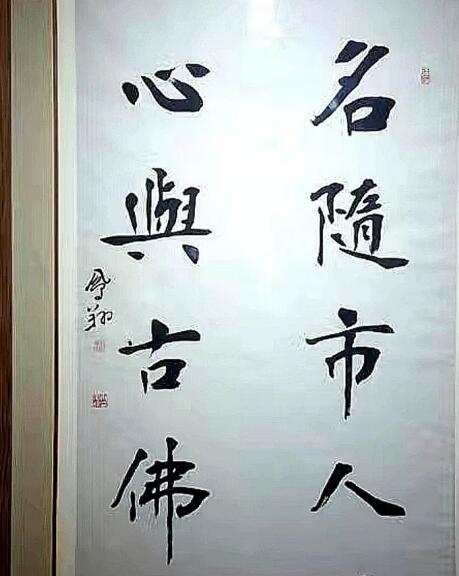 名隨市人
心與古佛
鳳翔